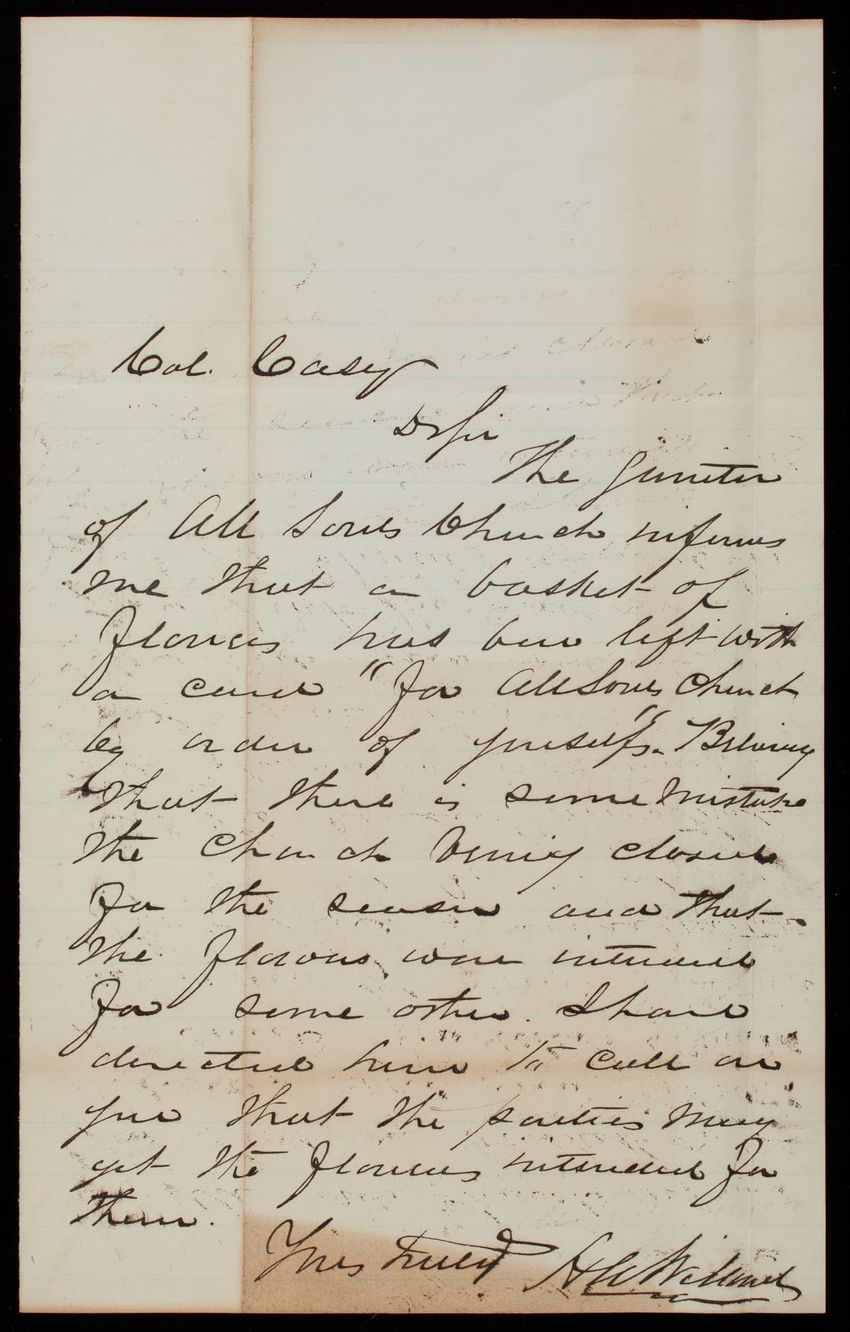 Col. Casey
Dr Sir
The Janitor
of All Souls Church informs
me that a basket of
flowers has been left with
a card "for All Souls Church
by order of yourself". Believing
that there is some mistake
the Church being closed
for the season and that
the flowers were intended
for some other. I have
directed him to call on
you that the parties may
get the flowers intended for
them.
Yours truly H A Willard